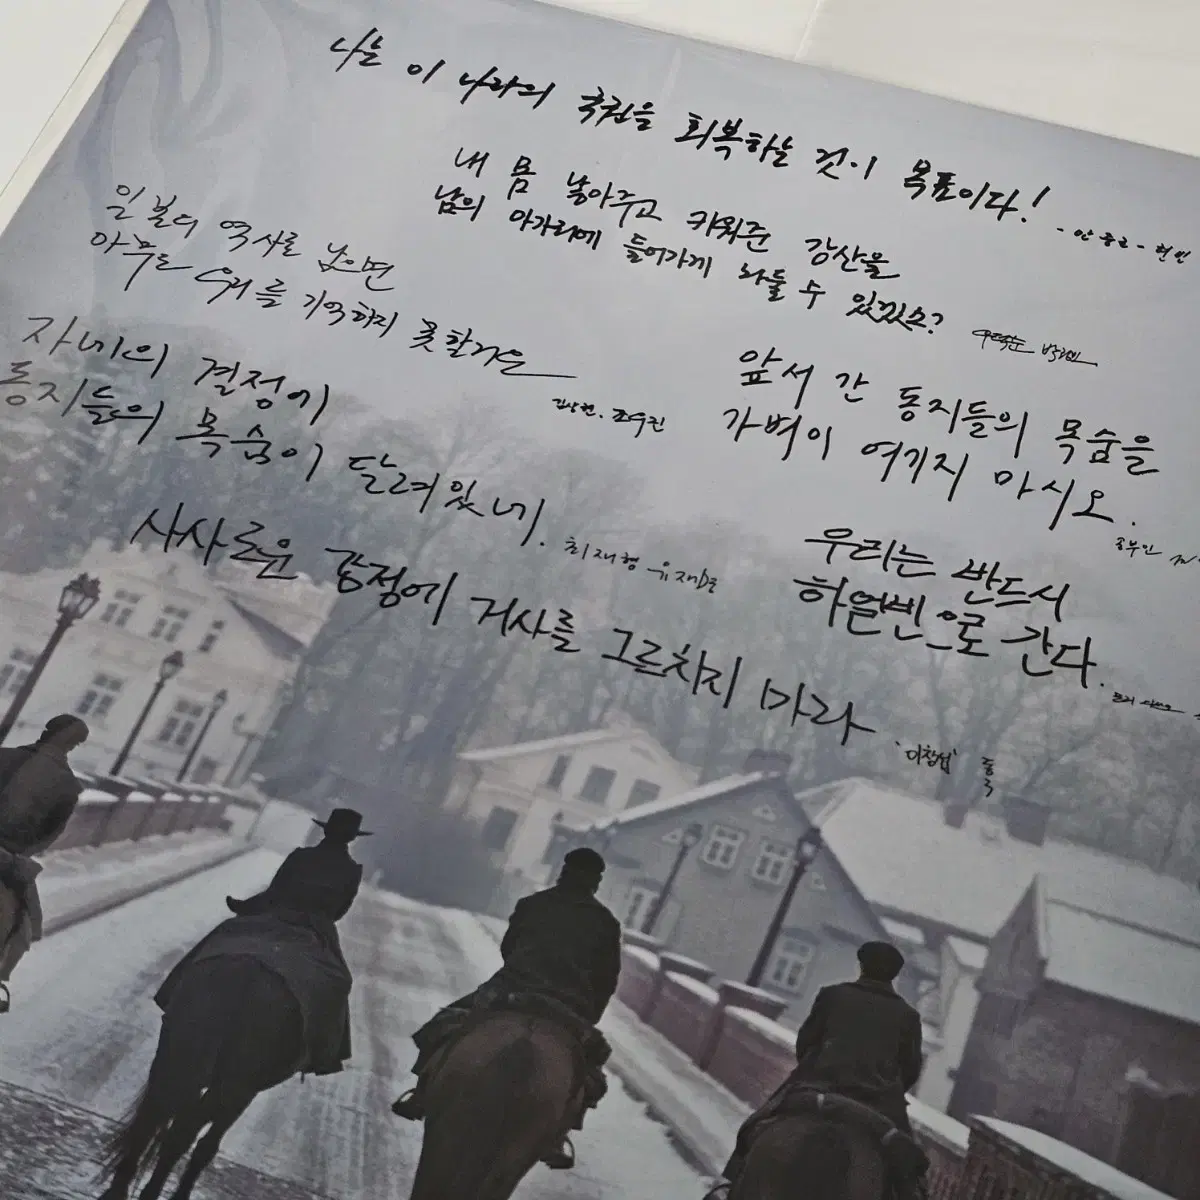 나는 이 나라의 국권을 회복하는 것이 목표이다!
- 안중근 - 현빈
내 몸 낳아주고 키워준 강산을
남의 아가리에 들어가게 놔둘 수 있겠소?
우덕순 박정민
일본의 역사로 남으면
아무도 우리를 기억하지 못할거요
김상현. 조우진
자네의 결정에
동지들의 목숨이 달려있네.
최재형 유재명
앞서 간 동지들의 목숨을
가벼이 여기지 마시오.
공부인
우리는 반드시
하얼빈으로 간다.
사사로운 감정에 거사를 그르치지 마라
'이창섭' 동욱